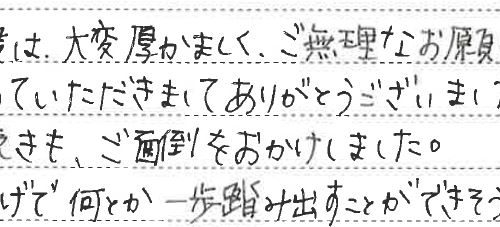 は、大変厚かましく、ご無理なお願
ていただきましてありがとうございまし
きも、ご面倒をおかけしました。
げで何とか一歩踏み出すことができそう